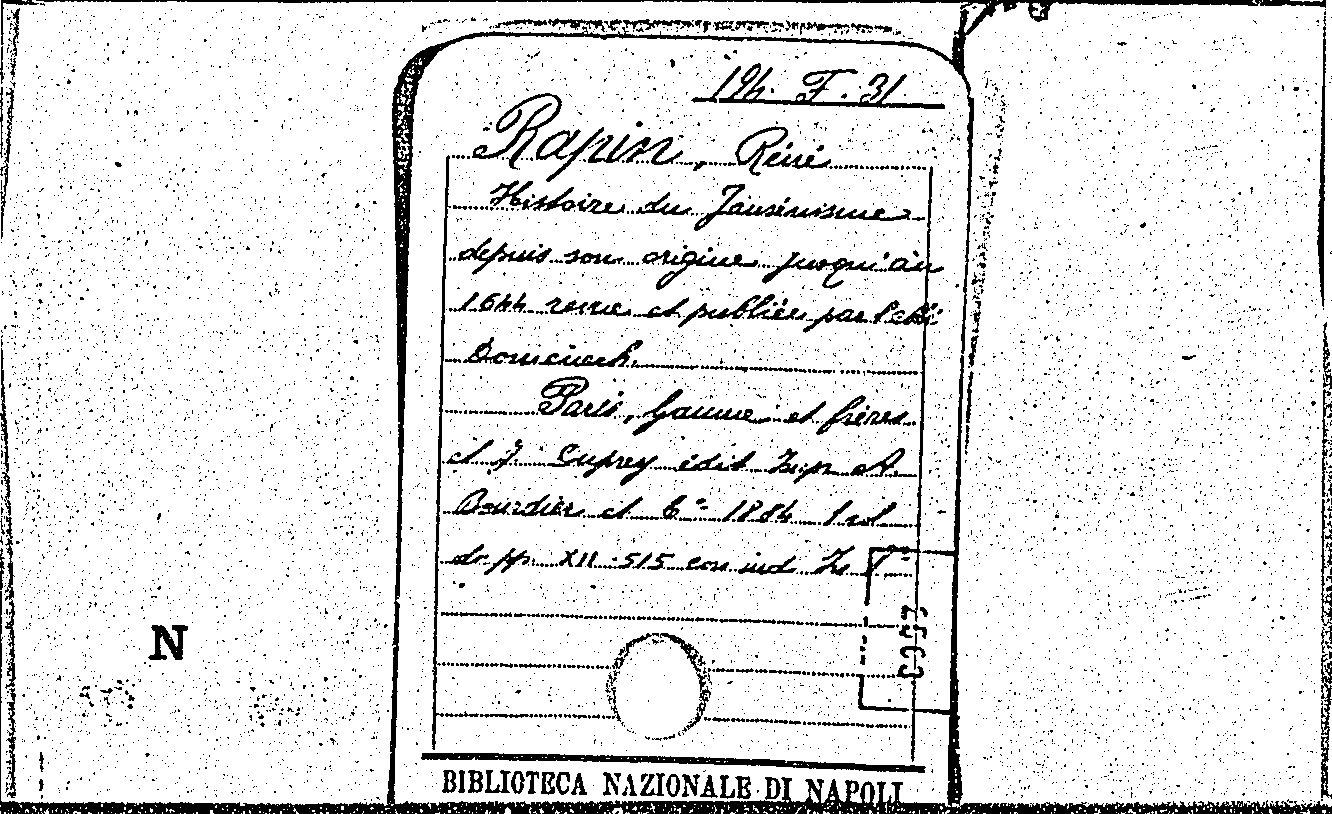 194. F. 31
Rapin, Réné
Histoire du Jansénisme
depuis son origine jusqu'au
1644 revue et publiée par l'abbé
Domenech.
Paris, Gaume et frères
et J. Duprey édit Imp A.
Bourdier et C.e 1884 1 vol
di pp. XII-515 con ind In
N
BIBLIOTECA NAZIONALE DI NAPOLI